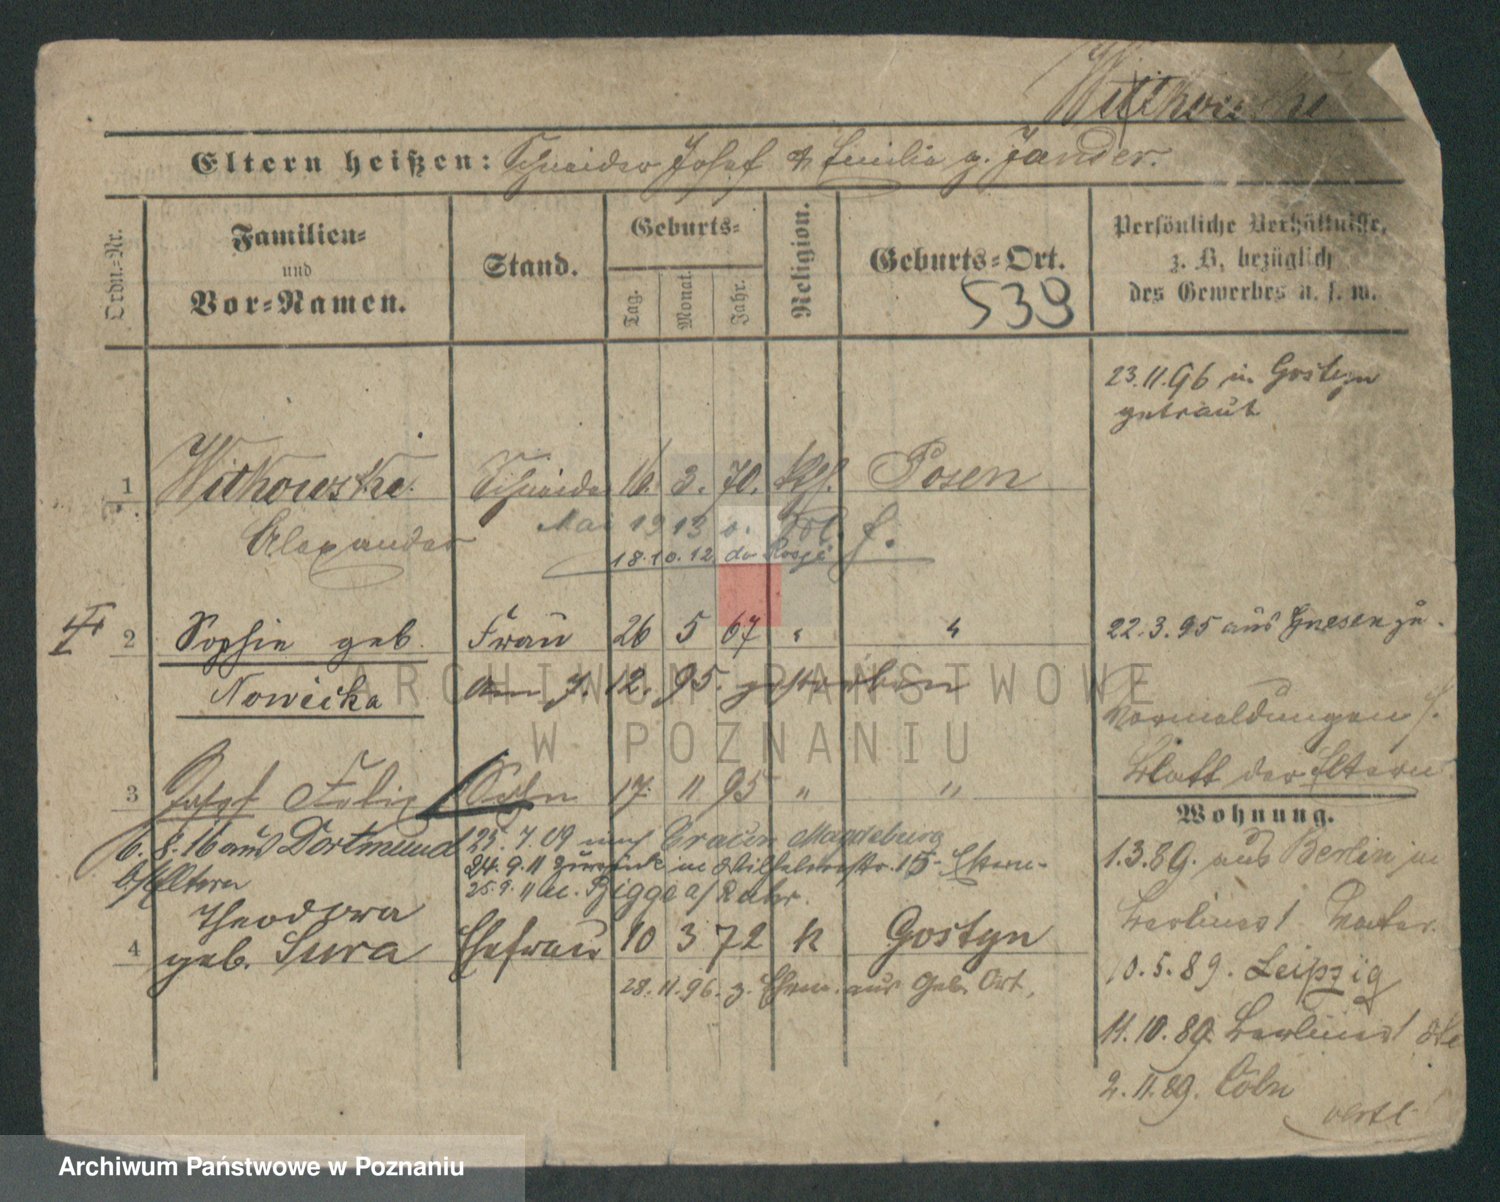 Witkowski
Eltern heißen: Schneider Josef & Emilie g. Jander.
Ordn.-Nr.
Familien-
und
Vor-Namen.
Stand.
Geburts-
Tag.
Monat.
Jahr.
Religion.
Geburts-Ort.
539
Persönliche Verhältnisse,
z. B. bezüglich
des Gewerbes u. s. w.
23.11.96 in Gostyn
getraut
1 Witkowski Schneider 16. 3. 70. Posen
Alexander Mai 1913
18.10.12
2 Sophie geb. Frau 26 5 67 " "
Nowicka am 7. 12. 95. gestorben
22.3.95 aus Gnesen zu.
Vormeldungen s.
Blatt der Eltern
3 Josef Felix Sohn 17. 11 95 " "
6.8.16 aus Dortmund 25.7.09 nach Cracau Magdeburg
24.9.11 zurück 15 Eltern
b/Eltern 25.9.11 n. Bigge a/Ruhr.
Theodora
4 geb. Sura Ehefrau 10 3 72 k Gostyn
28.11.96. z. Ehem. aus Geb. Ort.
Wohnung.
1.3.89. aus Berlin in
10.5.89. Leipzig
11.10.89.
2.11.89. Cöln
ARCHIWUM PAŃSTWOWE
W POZNANIU
Archiwum Państwowe w Poznaniu